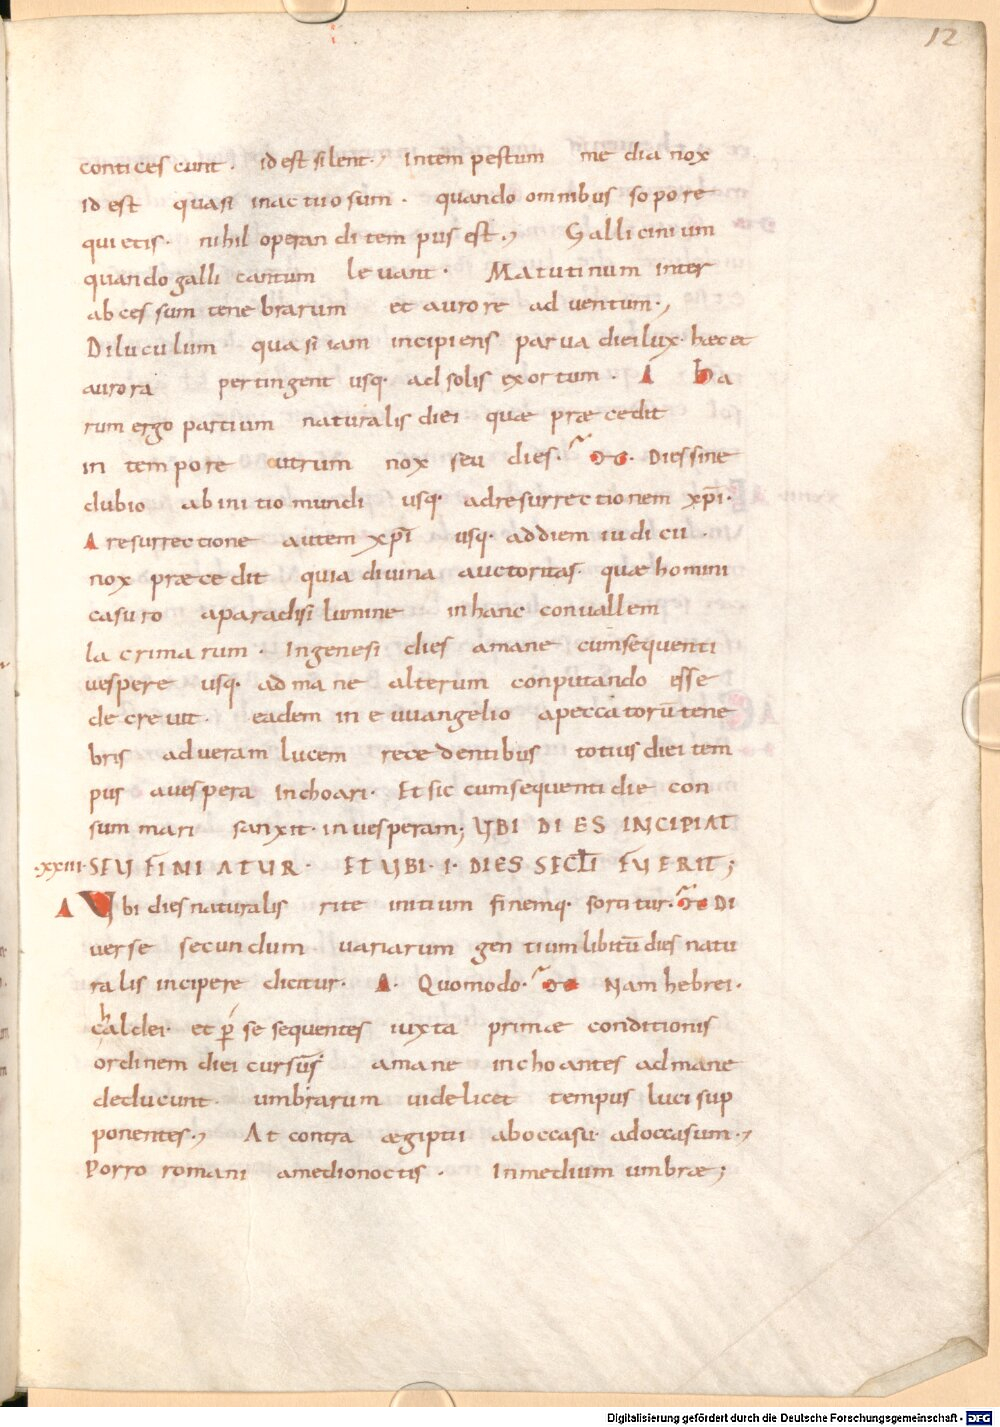 12
conticescunt. id est silent., Intempestum media nox
id est quasi inactuosum. quando omnibus sopore
quietis. nihil operandi tempus est., Gallicinium
quando galli cantum levant. Matutinum inter
abcessum tenebrarum et aurore adventum.,
Diluculum quasi iam incipiens parva diei lux. hæc et
aurora pertingent usq. ad solis exortum. Δ ha
rum ergo partium naturalis diei quæ præcedit
in tempore utrum nox seu dies. Dies sine
dubio ab initio mundi usq. ad resurrectionem xp̄i.
A resurrectione autem xp̄i usq. ad diem iudicii.
nox præcedit quia divina auctoritas. quæ homini
casuro a paradisi lumine in hanc convallem
lacrimarum. In genesi dies a mane cum sequenti
vespere usq. ad mane alterum conputando esse
decrevit. eadem in evvangelio a peccatorū tene
bris ad veram lucem recedentibus totius diei tem
pus a vespera inchoari. Et sic cum sequenti die con
summari sanxit. in vesperam; UBI DIES INCIPIAT
.xxiii. SEU FINIATUR. ET UBI .I. DIES SECL̄I FUERIT;
Δ Ubi dies naturalis rite initium finemq. sortitur. Di
verse secundum variarum gentium libitū dies natu
ralis incipere dicitur. Δ. Quomodo. Nam hebrei.
chaldei. et p̱ se sequentes iuxta primæ conditionis
ordinem diei cursūs a mane inchoantes ad mane
deducunt. umbrarum videlicet tempus luci sup
ponentes., At contra ægiptii ab occasu. ad occasum.,
Porro romani a medio noctis. In medium umbræ;
Digitalisierung gefördert durch die Deutsche Forschungsgemeinschaft - DFG